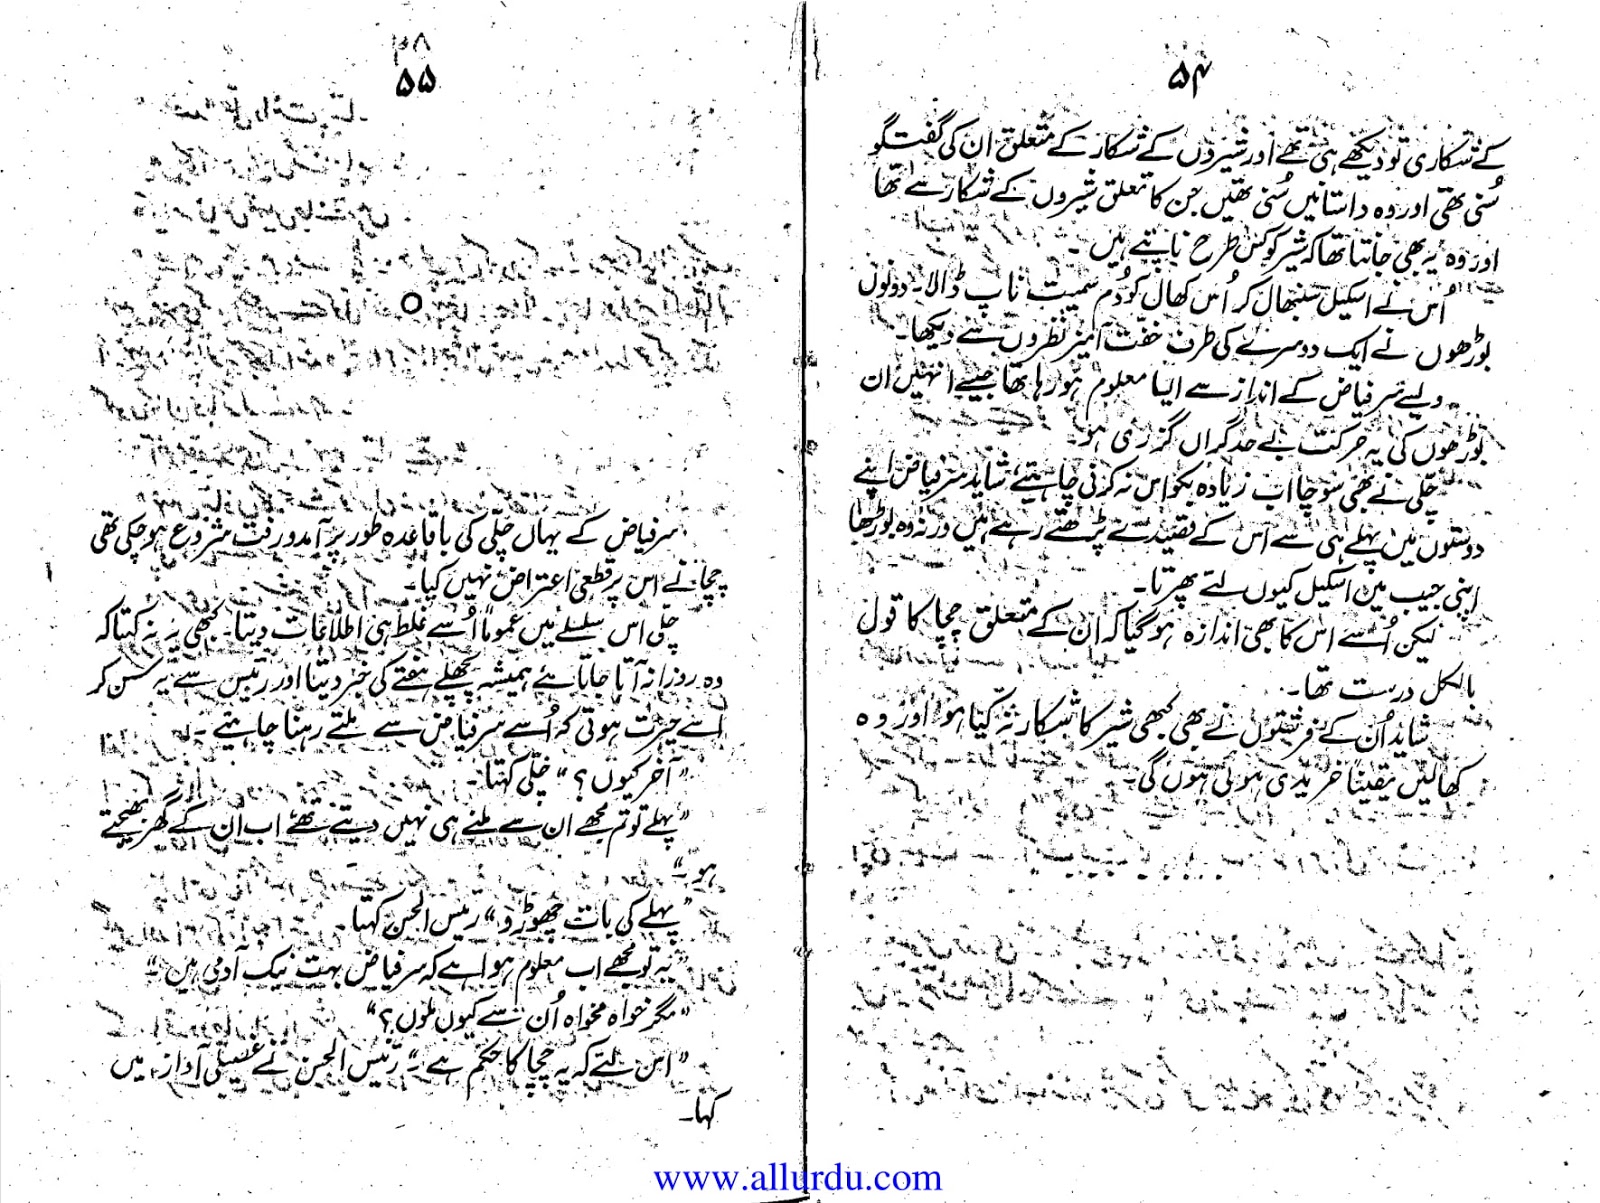 ۵۴
کے شکاری تو دیکھے ہی تھے اور شیروں کے شکار کے متعلق ان کی گفتگو
سُنی تھی اور وہ داستانیں سُنی تھیں جن کا تعلق شیروں کے شکار سے تھا
اور وہ یہ بھی جانتا تھا کہ شیر کو کس طرح ناپتے ہیں ۔
اُس نے اسکیل سنبھال کر اُس کھال کو دُم سمیت ناپ ڈالا۔ دونوں
بوڑھوں نے ایک دوسرے کی طرف خفّت آمیز نظروں سے دیکھا۔
ویسے سرفیاض کے انداز سے ایسا معلوم ہو رہا تھا جیسے انہیں ان
بوڑھوں کی یہ حرکت بے حد گراں گزری ہو۔
چلّی نے بھی سوچا اب زیادہ بکواس نہ کرنی چاہیئے شاید سرفیاض اپنے
دوستوں میں پہلے ہی سے اس کے قصیدے پڑھتے رہے ہیں ورنہ وہ بوڑھا
اپنی جیب میں اسکیل کیوں لئے پھرتا۔
لیکن اُسے اس کا بھی اندازہ ہو گیا کہ ان کے متعلق چچا کا قول
بالکل درست تھا۔
شاید اُن کے فرشتوں نے بھی کبھی شیر کا شکار نہ کیا ہو اور وہ
کھالیں یقیناً خریدی ہوئی ہوں گی۔
۵۵
سرفیاض کے یہاں چلّی کی باقاعدہ طور پر آمدورفت شروع ہو چکی تھی
چچا نے اس پر قطعی اعتراض نہیں کیا۔
چلّی اس سلسلے میں عموماً اُسے غلط ہی اطلاعات دیتا۔ کبھی یہ نہ کہتا کہ
وہ روزانہ آتا جاتا ہے ہمیشہ پچھلے ہفتے کی خبر دیتا اور رئیس سے یہ سُن کر
اسے حیرت ہوتی کہ اُسے سرفیاض سے ملتے رہنا چاہیئے ۔
”آخر کیوں؟“ چلّی کہتا۔
”پہلے تو تم مجھے ان سے ملنے ہی نہیں دیتے تھے اب ان کے گھر بھیجتے
ہو۔“
”پہلے کی بات چھوڑو“ رئیس الحسن کہتا۔
”یہ تو مجھے اب معلوم ہوا ہے کہ سرفیاض بہت نیک آدمی ہیں“
”مگر خواہ مخواہ اُن سے کیوں ملوں؟“
”اس لئے کہ یہ چچا کا حکم ہے۔“ رئیس الحسن نے غصیلی آواز میں
کہا۔
www.allurdu.com